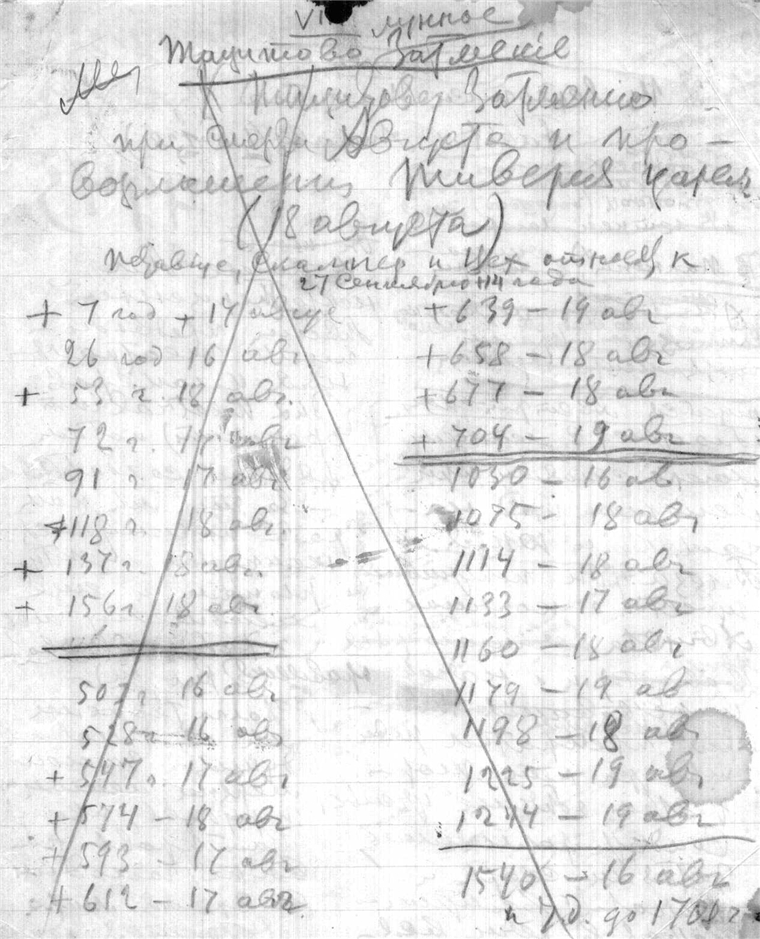 VI лунное
Тацитово Затмение
Затмению
при смерти Августа и про-
возглашении Тиверия царем
(18 августа)
Скалигер и Цех относят к
27 Сентября +14 года
+ 7 год + 17 авгус
26 год 16 авг
+ 53 г. 18 авг.
72 г. 17 авг
91 г. 17 авг
+118 г. 18 авг.
+ 137 г. 18 авг.
+ 156 г. 18 авг.
507 г. 16 авг
528 г. 16 авг
+ 547 г. 17 авг
+ 574 – 18 авг
+ 593 – 17 авг
+ 612 – 17 авг
+ 639 – 19 авг
+ 658 – 18 авг
+ 677 – 18 авг
+ 704 – 19 авг
1030 – 16 авг
1075 – 18 авг
1114 – 18 авг
1133 – 17 авг
1160 – 18 авг
1179 – 19 ав
1198 – 18 ав
1225 – 19 авг
1244 – 19 авг
1540 – 16 авг
и т.д. до 1700 г